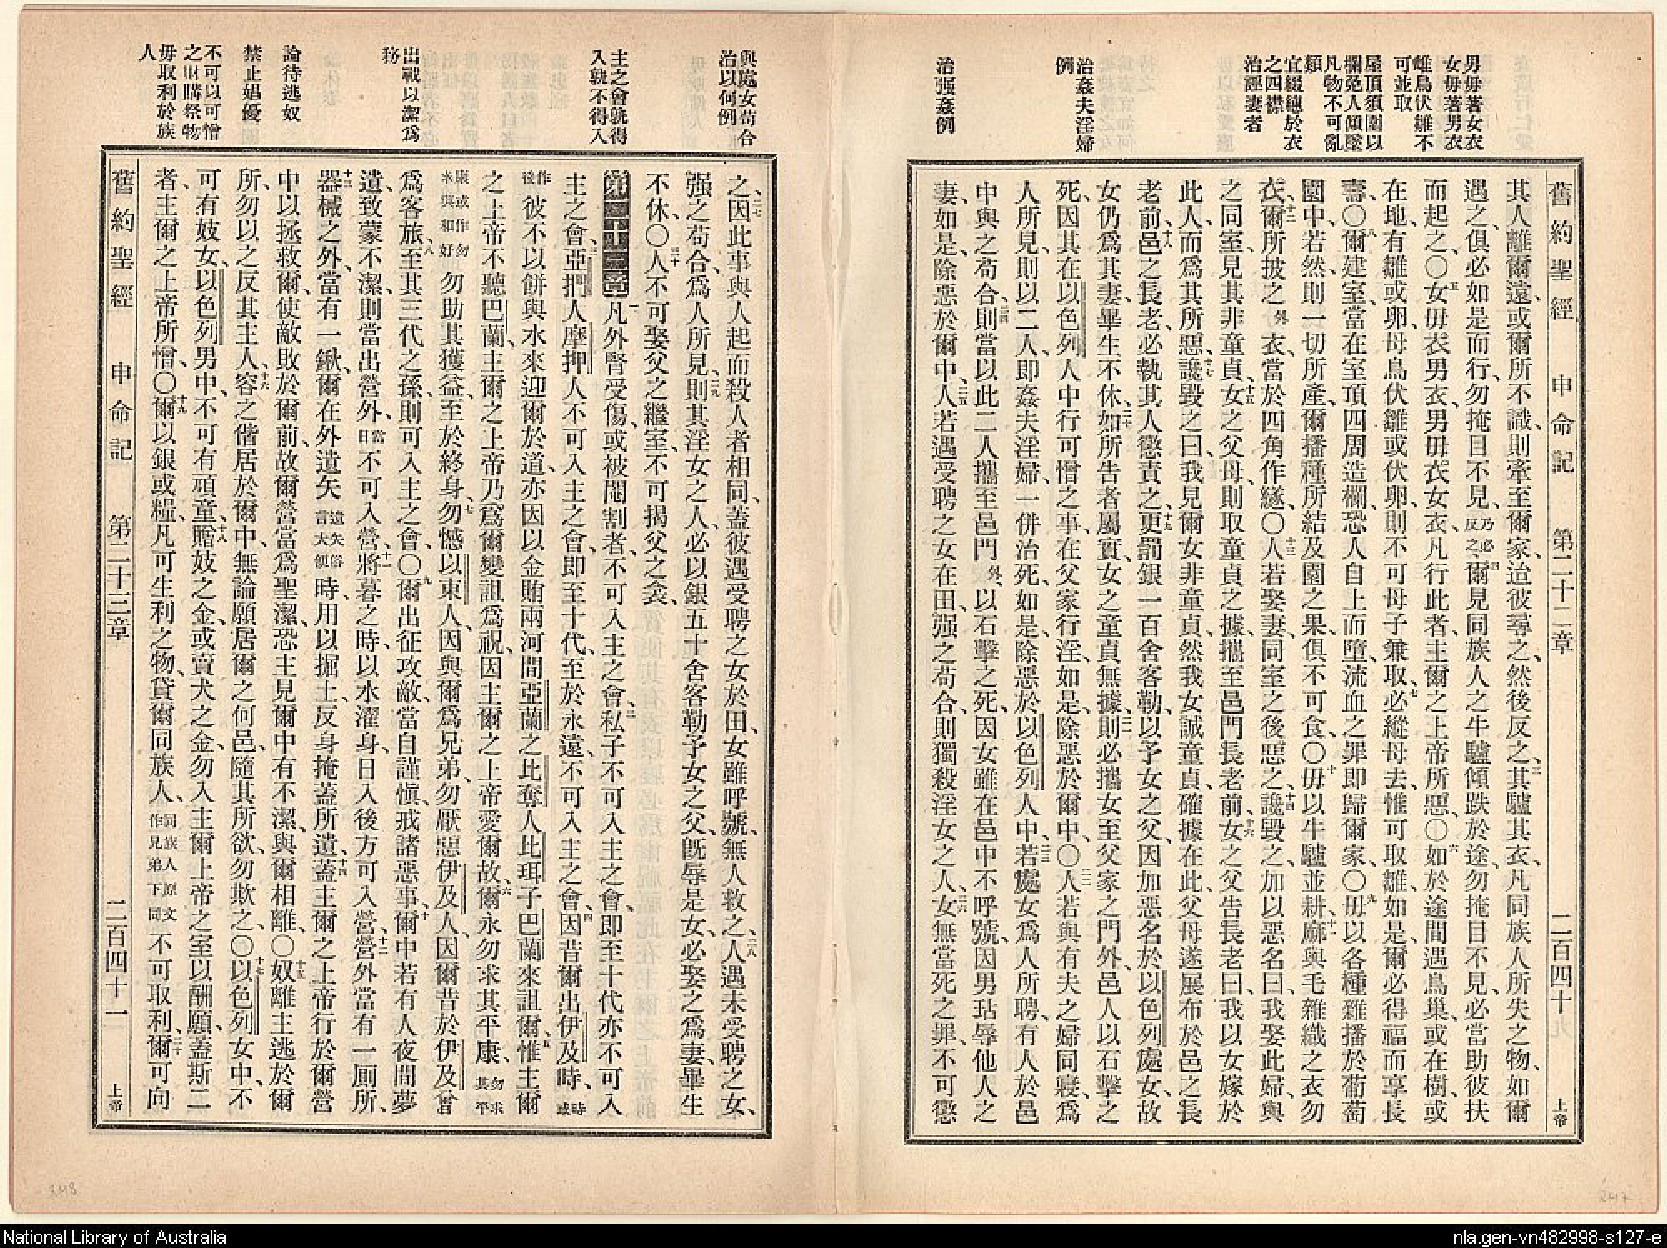 男毋著女衣
女毋著男衣
雌鳥伏雛不
可並取
屋頂須圍以
欄免人傾墜
凡物不可亂
類
宜綴繸於衣
之四襟
治誣妻者
治姦夫淫婦
例
治强姦例
舊約聖經 申命記 第二十二章 二百四十 上帝
其人離爾遠、或爾所不識、則牽至爾家、迨彼尋之、然後反之、三其驢其衣、凡同族人所失之物、如爾
遇之、俱必如是而行、勿掩目不見、乃必反之四爾見同族人之牛驢傾跌於途、勿掩目不見、必當助彼扶
而起之、〇五女毋衣男衣、男毋衣女衣、凡行此者、主爾之上帝所惡、〇六如於途間遇鳥巢、或在樹或
在地、有雛或卵、母鳥伏雛或伏卵、則不可母子兼取、七必縱母去、惟可取雛、如是爾必得福而享長
壽、〇八爾建室、當在室頂四周造欄、恐人自上而墮、流血之罪、即歸爾家、〇九毋以各種雜播於葡萄
園中、若然、則一切所產、爾播種所結、及園之果、俱不可食、〇十毋以牛驢並耕、十一毋與毛雜織之衣勿
衣、十二爾所披之外衣、當於四角作繸、〇十三人若娶妻、同室之後惡之、十四讒毀之、加以惡名、曰、我娶此婦、與
之同室、見其非童貞女、十五女之父母、則取童貞之據、攜至邑門長老前、十六女之父告長老曰、我以女嫁於
此人、而爲其所惡、十七讒毀之曰、我見爾女非童貞、然我女誠童貞、確據在此、父母遂展布於邑之長
老前、十八邑之長老、必執其人懲責之、十九更罰銀一百舍客勒、以予女之父、因加惡名於以色列處女故、
女仍爲其妻、畢生不休、二十如所告者屬實、女之童貞無據、二一則必攜女至父家之門外、邑人以石擊之
死、因其在以色列人中行可憎之事、在父家行淫、如是除惡於爾中、〇二二人若與有夫之婦同寢、爲
人所見、則以二人即姦夫淫婦、一併治死、如是除惡於以色列人中、二三若處女爲人所聘、有人於邑
中與之苟合、二四則當以此二人攜至邑門外、以石擊之死、因女雖在邑中不呼號、因男玷辱他人之
妻、如是除惡於爾中、二五人若遇受聘之女在田、强之苟合、則獨殺淫女之人、二六女無當死之罪、不可懲
與處女苟合
治以何例
主之會孰得
入孰不得入
出戰以潔爲
務
論待逃奴
禁止娼優
不可以可憎
之財購祭物
毋取利於族
人
之、二七因此事與人起而殺人者相同、蓋彼遇受聘之女於田、女雖呼號、無人救之、二八人遇未受聘之女、
强之苟合、爲人所見、二九則其淫女之人、必以銀五十舍客勒予女之父、旣辱是女、必娶之爲妻、畢生
不休、〇三十人不可娶父之繼室、不可揭父之衾、
第二十三章 一凡外腎受傷、或被閹割者、不可入主之會、二私子不可入主之會、即至十代、亦不可入
主之會、三亞捫人摩押人不可入主之會、即至十代、至於永遠、不可入主之會、四因昔爾出伊及時、時或
作後彼不以餅與水來迎爾於道、亦因以金賄兩河間亞蘭之比奪人比珥子巴蘭來詛爾、五惟主爾
之上帝不聽巴蘭、主爾之上帝乃爲爾變詛爲祝、因主爾之上帝愛爾故、六爾永勿求其平康、勿求其平
康或作勿求與和好勿助其獲益、至於終身、七勿憾以東人、因與爾爲兄弟、勿厭惡伊及人、因爾昔於伊及曾
爲客旅、八至其三代之孫、則可入主之會、〇九爾出征攻敵、當自謹愼、戒諸惡事、十爾中若有人夜間夢
遺、致蒙不潔、則當出營外、當日不可入營、十一將暮之時、以水濯身、日入後方可入營、十二營外當有一厠所、
十三器械之外、當有一鍬、爾在外遺矢遺矢俗言大便時、用以掘土、反身掩蓋所遺、十四蓋主爾之上帝行於爾營
中、以拯救爾、使敵敗於爾前、故爾營當爲聖潔、恐主見爾中有不潔、與爾相離、〇十五奴離主逃於爾
所、勿以之反其主人、十六容之偕居於爾中、無論願居爾之何邑、隨其所欲、勿欺之、〇十七以色列女中不
可有妓女、以色列男中、不可有頑童、十八贍妓之金、或賣犬之金、勿入主爾上帝之室以酬願、蓋斯二
者、主爾之上帝所憎、〇十九爾以銀或糧、凡可生利之物、貸爾同族人、同族人原文作兄弟下同不可取利、二十爾可向
舊約聖經 申命記 第二十三章 二百四十一 上帝
248
247
National Library of Australia
nla.gen-vn482998-s127-e